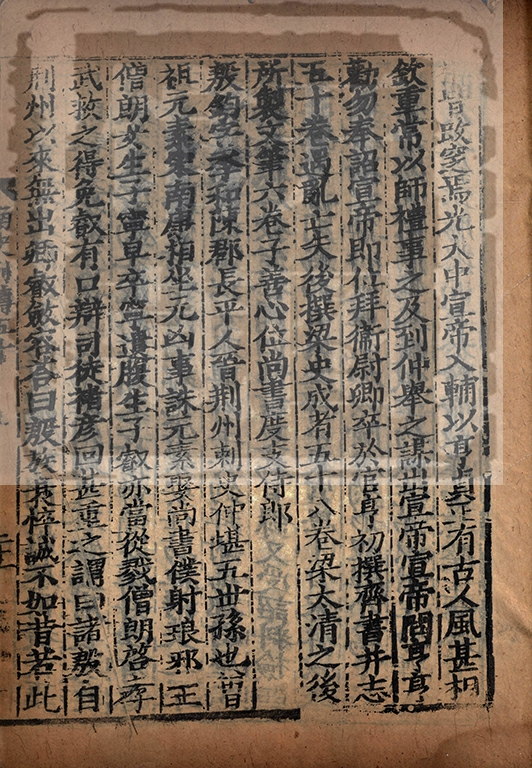 皆改窆焉光大中宣帝入輔以亨貞正有古人風甚相
欽重常以師禮事之及到仲舉之謀出宣帝宣帝問亨亨
勸勿奉詔宣帝即位拜衞尉卿卒於官亨初撰齊書并志
五十卷遇亂亡失後撰梁史成者五十八卷梁太清之後
所製文筆六卷子善心位尚書度支侍郎
殷鈞字季和陳郡長平人晉荊州刺史仲堪五世孫也曾
祖元素宋南康相坐元凶事誅元素娶尚書僕射琅邪王
僧朗女生子寧早卒寧遺腹生子叡亦當從戮僧朗啓孝
武救之得免叡有口辯司徒褚彥回甚重之謂曰諸殷自
荆州以來無出卿叡斂容荅曰殷族衰悴誠不如昔若此